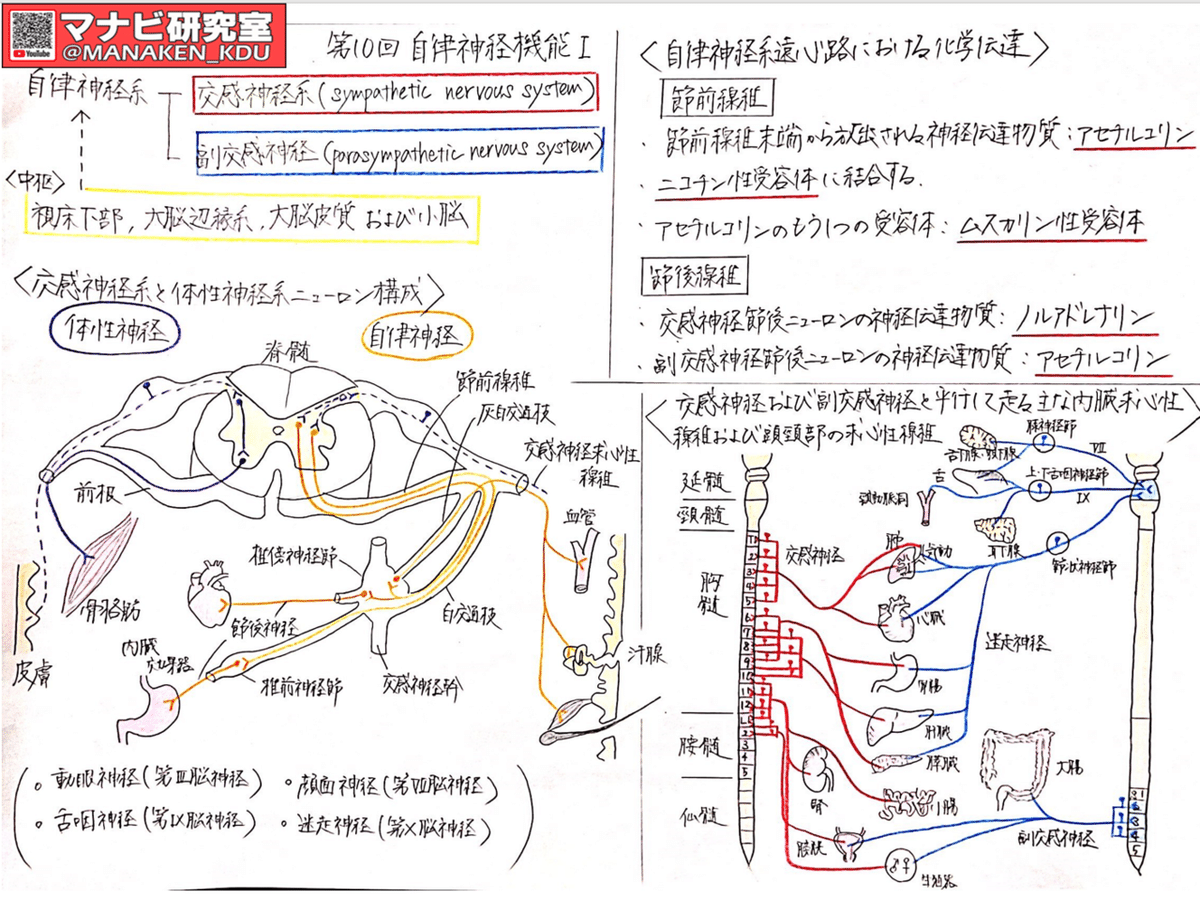 マナビ研究室
YouTube
@MANAKEN_KDU
第10回 自律神経機能Ⅰ
自律神経系
交感神経系(sympathetic nervous system)
副交感神経(parasympathetic nervous system)
〈中枢〉
視床下部,大脳辺縁系,大脳皮質および小脳
〈交感神経系と体性神経系ニューロン構成〉
体性神経
自律神経
脊髄
節前線維
灰白交通枝
交感神経求心性
線維
前根
血管
椎傍神経節
骨格筋
節後神経
白交通枝
内臓
皮膚
椎前神経節
交感神経幹
汗腺
動眼神経(第Ⅲ脳神経)
顔面神経(第Ⅶ脳神経)
舌咽神経(第Ⅸ脳神経)
迷走神経(第Ⅹ脳神経)
〈自律神経系遠心路における化学伝達〉
節前線維
・節前線維末端から放出される神経伝達物質:アセチルコリン
・ニコチン性受容体に結合する.
・アセチルコリンのもう1つの受容体:ムスカリン性受容体
節後線維
・交感神経節後ニューロンの神経伝達物質:ノルアドレナリン
・副交感神経節後ニューロンの神経伝達物質:アセチルコリン
〈交感神経および副交感神経と平行して走る主な内臓求心性
線維および頭頸部の求心性線維〉
膝神経節
Ⅶ
舌
上・下舌咽神経節
Ⅸ
頸動脈洞
耳下腺
節状神経節
延髄
頸髄
胸髄
腰髄
仙髄
交感神経
肺
心臓
迷走神経
胃腸
肝臓
膵臓
大腸
腎
小腸
膀胱
副交感神経
生殖器